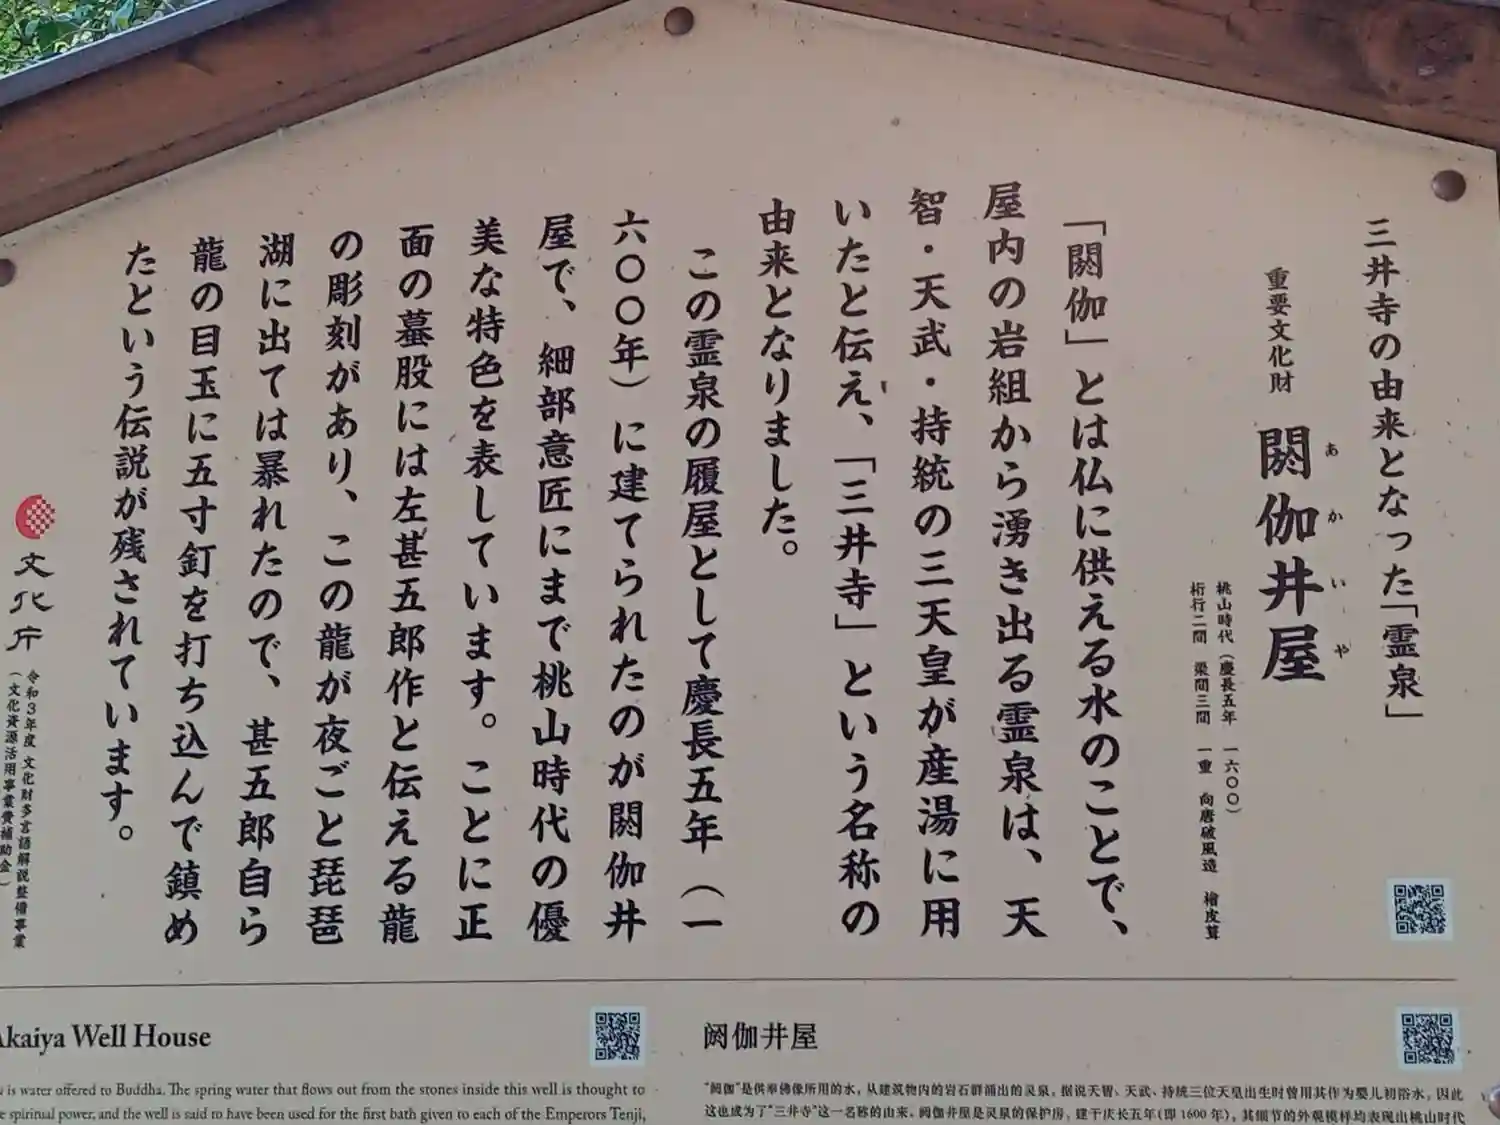 三井寺の由来となった「霊泉」
重要文化財 閼伽井屋
あかいや
桃山時代（慶長五年 一六〇〇）
桁行二間 梁間三間 一重 向唐破風造 檜皮葺
「閼伽」とは仏に供える水のことで、
屋内の岩組から湧き出る霊泉は、天
智・天武・持統の三天皇が産湯に用
いたと伝え、「三井寺」という名称の
由来となりました。
この霊泉の履屋として慶長五年（一
六〇〇年）に建てられたのが閼伽井
屋で、細部意匠にまで桃山時代の優
美な特色を表しています。ことに正
面の蟇股には左甚五郎作と伝える龍
の彫刻があり、この龍が夜ごと琵琶
湖に出ては暴れたので、甚五郎自ら
龍の目玉に五寸釘を打ち込んで鎮め
たという伝説が残されています。
文化庁
令和3年度 文化財多言語解説整備事業
（文化資源活用事業費補助金）
Akaiya Well House
is water offered to Buddha. The spring water that flows out from the stones inside this well is thought to
spiritual power, and the well is said to have been used for the first bath given to each of the Emperors Tenji,
阏伽井屋
"阏伽"是供奉佛像所用的水，从建筑物内的岩石群涌出的灵泉，据说天智、天武、持统三位天皇出生时曾用其作为婴儿初浴水，因此
这也成为了"三井寺"这一名称的由来。阏伽井屋是灵泉的保护房，建于庆长五年（即 1600 年），其细节的外观模样均表现出桃山时代